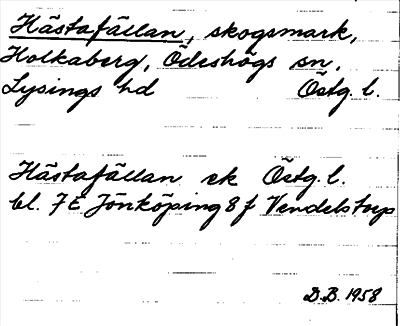 Hästafällan, skogsmark,
Holkaberg, Ödeshögs sn.
Lysings hd Östg. l.
Hästafällan ek Östg. l.
bl. 7E Jönköping 8f Vendelstorp
B.B. 1958